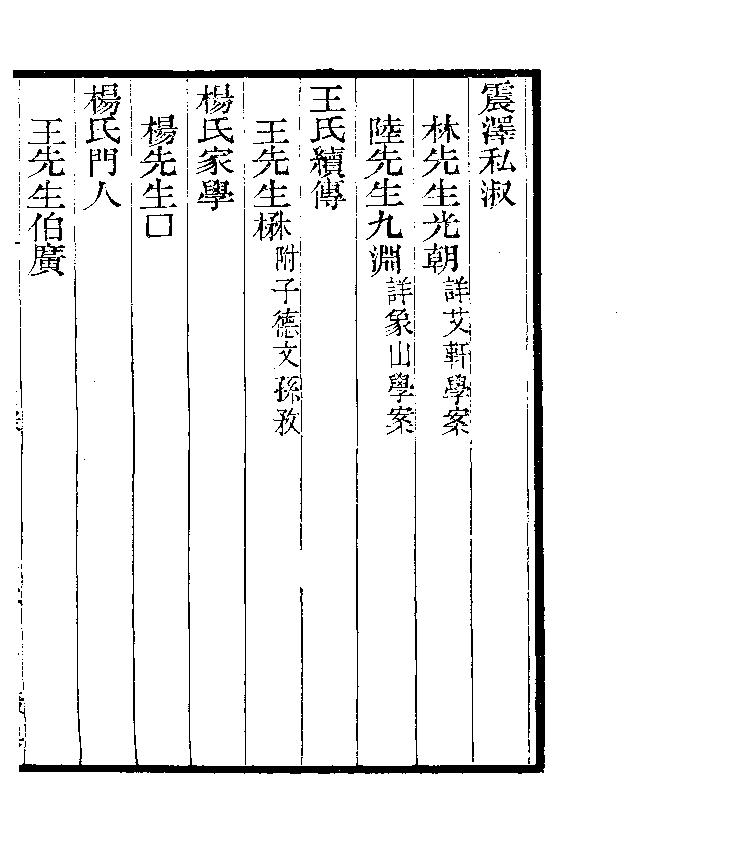 震澤私淑
林先生光朝詳艾軒學案
陸先生九淵詳象山學案
王氏續傳
王先生楙附子德文孫孜
楊氏家學
楊先生囗
楊氏門人
王先生伯廣